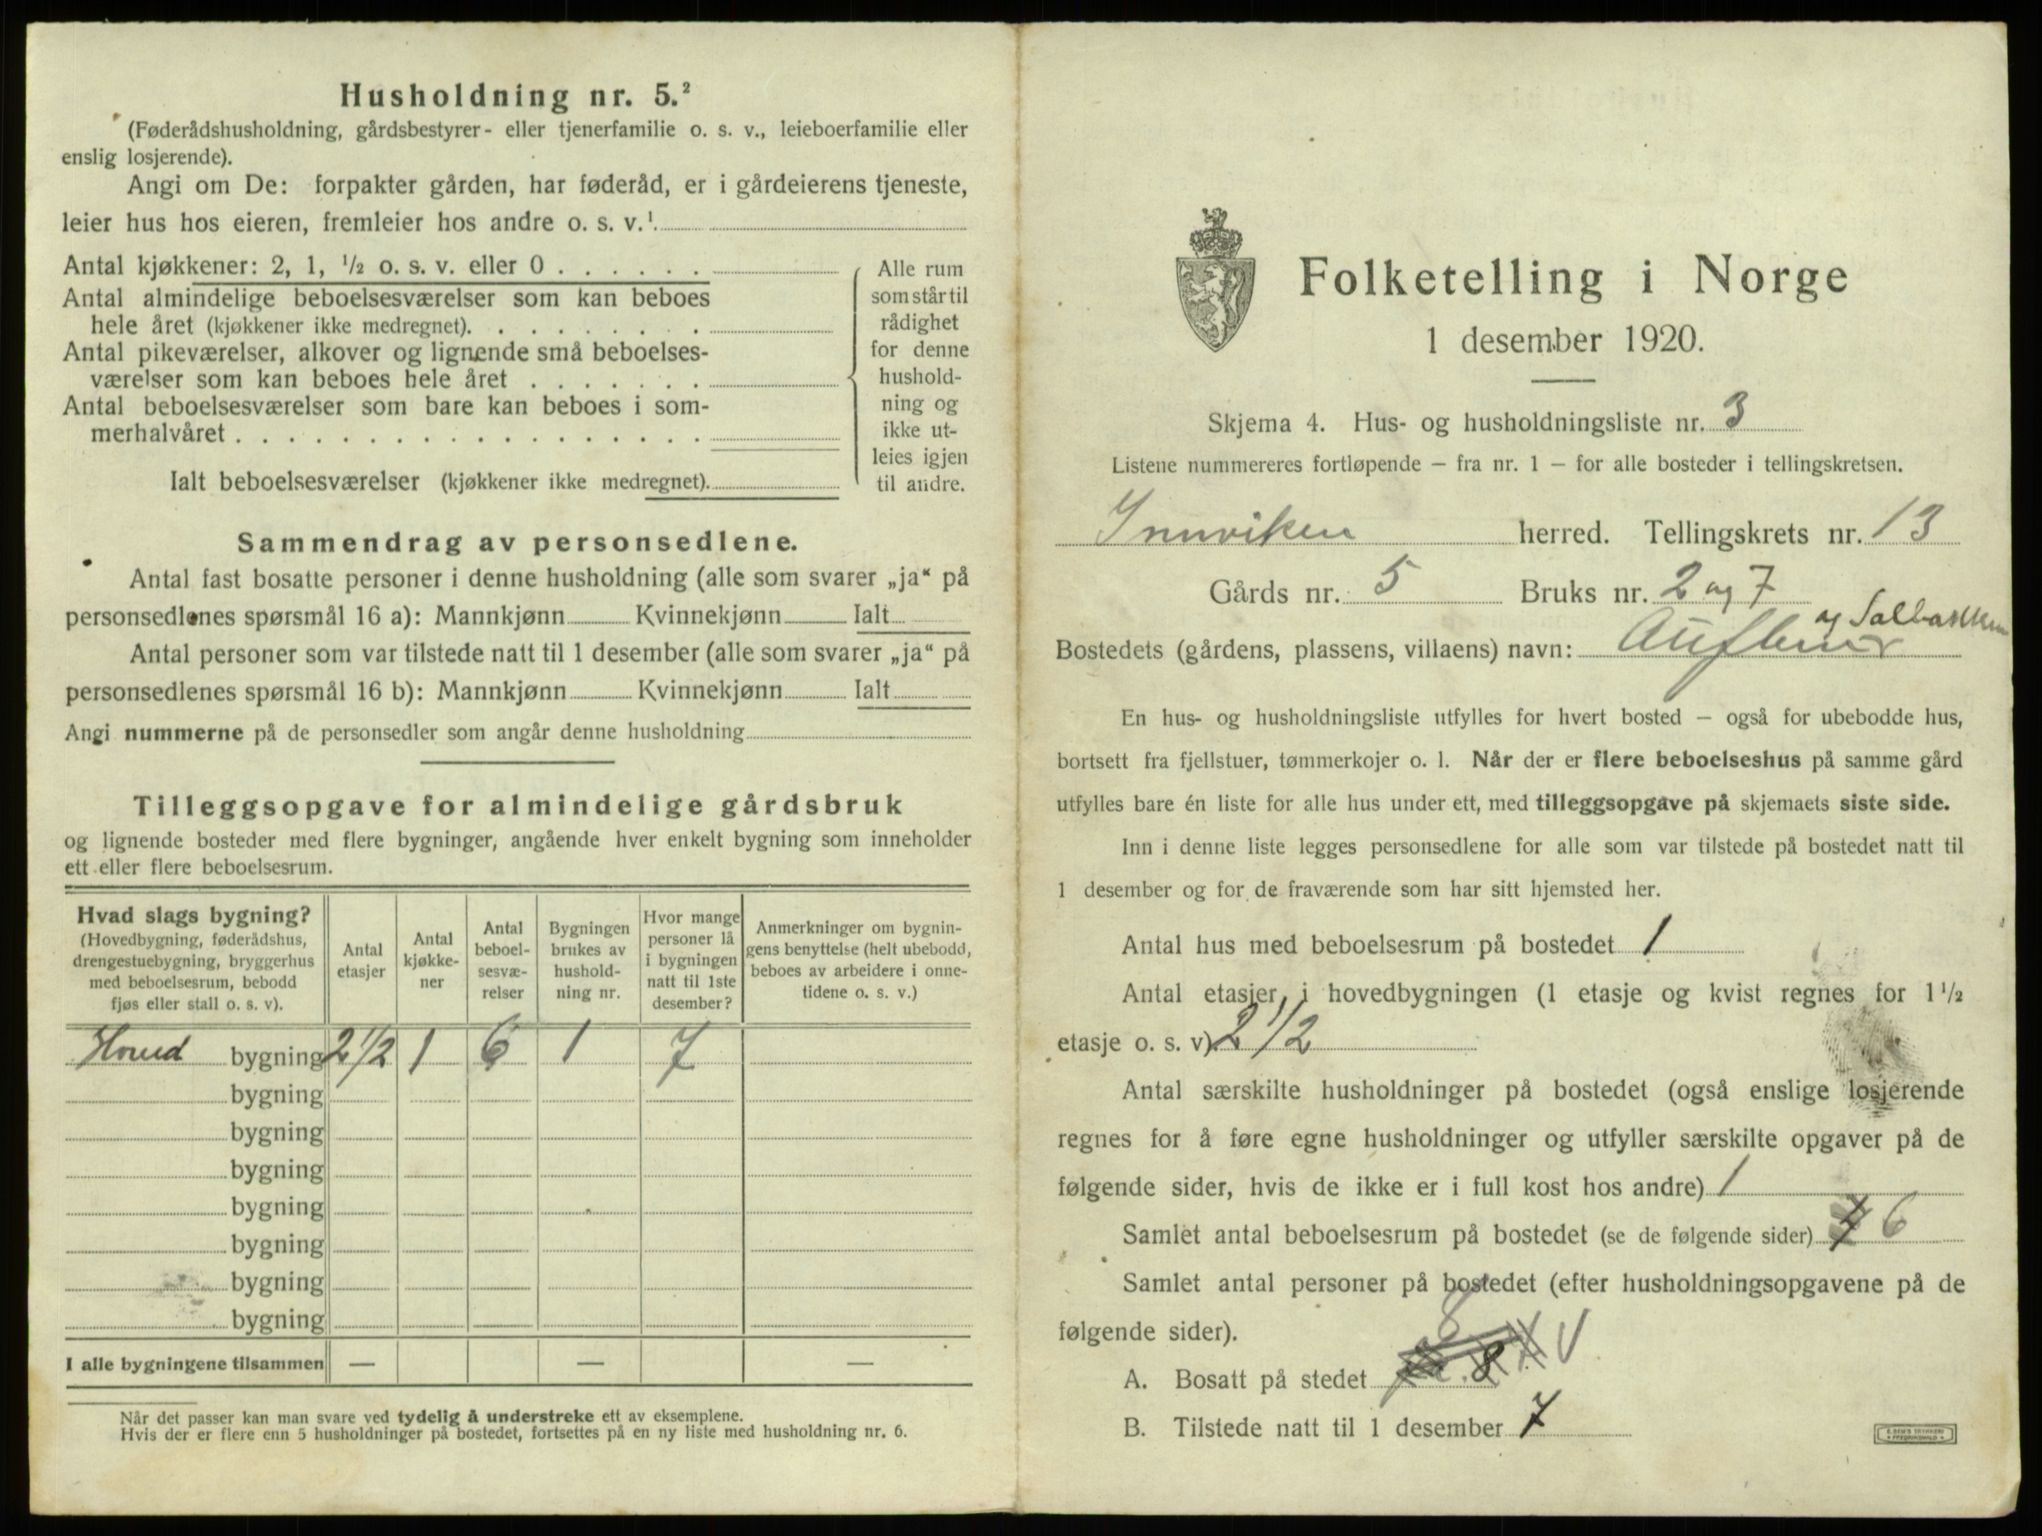 Husholdning nr. 5.²
(Føderådshusholdning, gårdsbestyrer- eller tjenerfamilie o. s. v., leieboerfamilie eller
enslig losjerende).
Angi om De: forpakter gården, har føderåd, er i gårdeierens tjeneste,
leier hus hos eieren, fremleier hos andre o. s. v.¹
Antal kjøkkener: 2, 1, ½ o. s. v. eller 0 . . . . . .
Antal almindelige beboelsesværelser som kan beboes
hele året (kjøkkener ikke medregnet). . . . . . . . .
Antal pikeværelser, alkover og lignende små beboelses-
værelser som kan beboes hele året . . . . . . .
Antal beboelsesværelser som bare kan beboes i som-
merhalvåret . . . . . . . . . . . . . . . . . .
Ialt beboelsesværelser (kjøkkener ikke medregnet).
Alle rum
som står til
rådighet
for denne
hushold-
ning og
ikke ut-
leies igjen
til andre.
Sammendrag av personsedlene.
Antal fast bosatte personer i denne husholdning (alle som svarer „ja“ på
personsedlenes spørsmål 16 a): Mannkjønn Kvinnekjønn Ialt
Antal personer som var tilstede natt til 1 desember (alle som svarer „ja“ på
personsedlenes spørsmål 16 b): Mannkjønn Kvinnekjønn Ialt
Angi nummerne på de personsedler som angår denne husholdning
Tilleggsopgave for almindelige gårdsbruk
og lignende bosteder med flere bygninger, angående hver enkelt bygning som inneholder
ett eller flere beboelsesrum.
Hvad slags bygning?
(Hovedbygning, føderådshus,
drengestuebygning, bryggerhus
med beboelsesrum, bebodd
fjøs eller stall o. s. v).
Antal
etasjer
Antal
kjøkke-
ner
Antal
beboel-
sesvæ-
relser
Bygningen
brukes av
hushold-
ning nr.
Hvor mange
personer lå
i bygningen
natt til 1ste
desember?
Anmerkninger om bygnin-
gens benyttelse (helt ubebodd,
beboes av arbeidere i onne-
tidene o. s. v.)
Hoved bygning 2 1/2 1 6 1 7
bygning
bygning
bygning
bygning
bygning
bygning
bygning
I alle bygningene tilsammen — — —
Når det passer kan man svare ved tydelig å understreke ett av eksemplene.
Hvis der er flere enn 5 husholdninger på bostedet, fortsettes på en ny liste med husholdning nr. 6.
Folketelling i Norge
1 desember 1920.
Skjema 4. Hus- og husholdningsliste nr. 3
Listene nummereres fortløpende – fra nr. 1 – for alle bosteder i tellingskretsen.
Innviken herred. Tellingskrets nr. 13
Gårds nr. 5 Bruks nr. 2 og 7
og Solbakken
Bostedets (gårdens, plassens, villaens) navn:
En hus- og husholdningsliste utfylles for hvert bosted – også for ubebodde hus,
bortsett fra fjellstuer, tømmerkojer o. l. Når der er flere beboelseshus på samme gård
utfylles bare én liste for alle hus under ett, med tilleggsopgave på skjemaets siste side.
Inn i denne liste legges personsedlene for alle som var tilstede på bostedet natt til
1 desember og for de fraværende som har sitt hjemsted her.
Antal hus med beboelsesrum på bostedet 1
Antal etasjer i hovedbygningen (1 etasje og kvist regnes for 1½
etasje o. s. v) 2 1/2
Antal særskilte husholdninger på bostedet (også enslige losjerende
regnes for å føre egne husholdninger og utfyller særskilte opgaver på de
følgende sider, hvis de ikke er i full kost hos andre) 1
Samlet antal beboelsesrum på bostedet (se de følgende sider) 7 6
Samlet antal personer på bostedet (efter husholdningsopgavene på de
følgende sider).
8
A. Bosatt på stedet 8
B. Tilstede natt til 1 desember 7